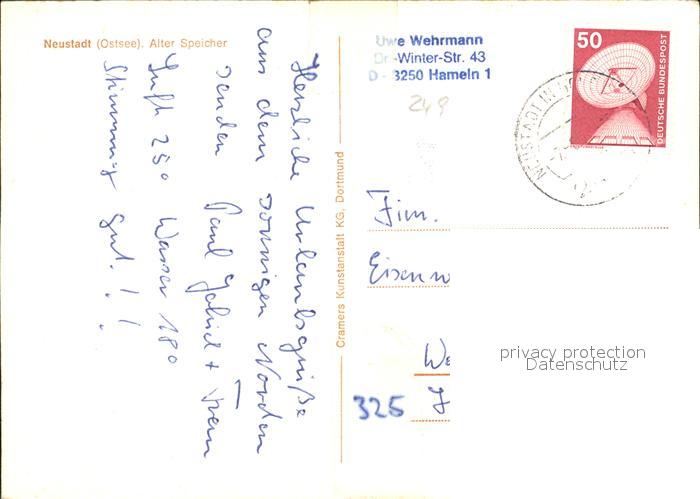 Neustadt (Ostsee). Alter Speicher
Herzliche Urlaubsgrüße
aus dem sonnigen Norden
senden
Paul Gabriel + Frau
Luft 25° Wasser 18°
Stimmung gut!!
Cramers Kunstanstalt KG, Dortmund
Uwe Wehrmann
Dr.-Winter-Str. 43
D - 3250 Hameln 1
249
50
DEUTSCHE BUNDESPOST
NEUSTADT IN
Firm.
We
325
privacy protection
Datenschutz